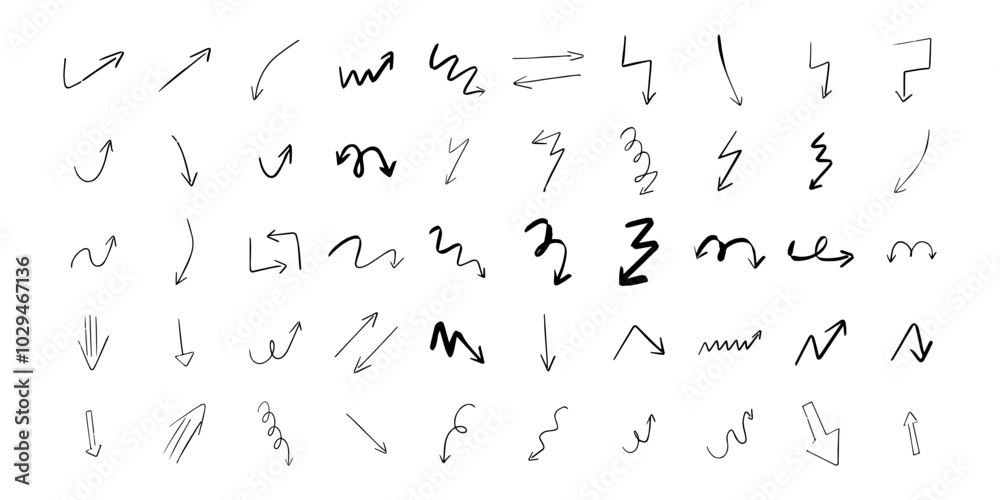 Adobe Stock | #1029467136